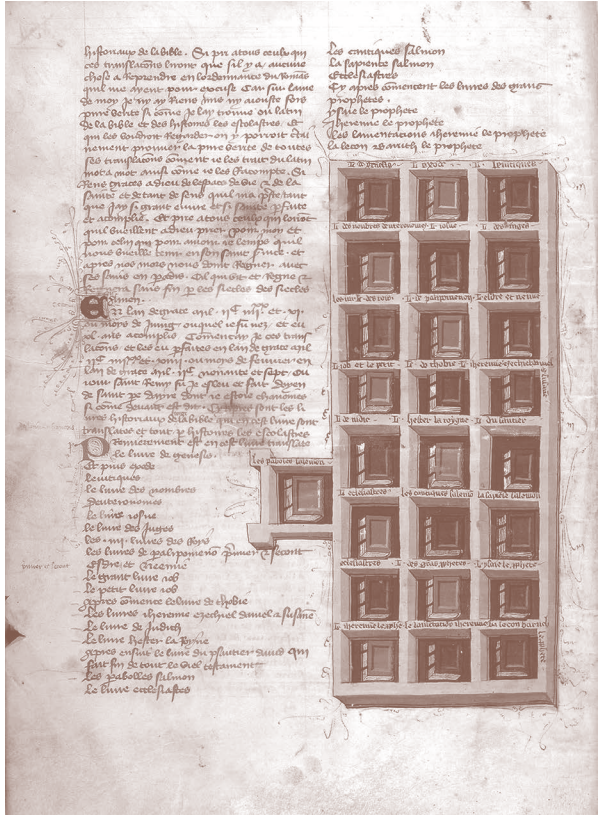 historiaux de la bible. Si pri a tous ceulx qui
ces translacions liront que sil y a aucune
chose a Reprendre en lordonnance du Romans
quil me ayent pour excuse Car sur lame
de moy Je ny ay Riens mis ny aiouste fors
pure verite si comme je lay trouve ou latin
de la bible et des histoires les escolastres. Et
qui les vouldroit Regarder on y porroit clai
nement prouver la pure verite de toutes
ses translacions coment je les trait du latin
mot a mot ainsi come je les Racompte. Si
Rens graces a dieu de lespace de vie & de la
sante et de tant de sens quil ma preste tant
que Jay si grant euvre et si
et acomplie. Et prie a tous ceulx qui liront
quil vueillent a dieu prier pour mon et
pour celui qui pour amour le temps quil
nous vueille tenir en son saint service. et
apres nos mors nous doint Regner avec
ses sains en paradis. Qui vit et Regne &
Regnera sans fin par les siecles des siecles
Amen.
En lan de grace mil. iic iiiixx. et. vi.
ou mois de Juing ouquel je fu nez. et eu
.xl. ans acomplis Comencay Je ces trans
lacions. et les eu parfaites en lan de grace mil
iic iiiixx et. xiiii. ou mois de fevrier. en
lan de grace mil. iic. nonante et sept. ou
jour saint Remy fu Je esleu et fait doyen
de saint pere daire dont je estoie chanoines
si come devant est dit. Ce sont les li
vres historiaux de la bible qui en cest livre sont
translates et tout par histoires les escolastres
Premierement est en cest livre translate
le livre de genesis.
Et puis exode
leviticques
le livre des nombres
deuteronomes
le livre iosue
le livre des Juges
les .iiii. livres des Roys
les livres de paralipomenon premier et second
Esdre et Neemie
le grant livre iob
le petit livre iob
Apres comence le livre de thobie
les livres iheremie ezechiel daniel & susanne
le livre de Judith
le livre hester la Royne
Apres ensuit le livre du psautier davis qui
fait fin de tout le viel testament
les paboles salmon
le livre ecclesiastes
les cantiques salmon
la sapience salmon
Ecclesiastres
Cy apres comencent les livres des grans
prophetes.
ysaie le prophete
Iheremie le prophete
les lamentacions iheremie le prophete
la lecon & baruth le prophete
li. de genesis. li. exode. li. leviticques
li. des nombres & deuteronomes li. iosue. li. des iuges
les iiii. li. des rois. li. de paralipomenon. li. esdre et neemie
li. iob et le petit. li. de thobie. li. iheremie ezechiel daniel
& susanne
li. de iudic. li. hester la royne. li. du sautier
les paboles salemon
li. ecclesiastes. les cantiques salemon la sapience salemon
ecclesiastres. li. des grans prophetes. li. ysaie le prophete
li. iheremie le prophete le lamentacions iheremie la lecon baruch
le prophete